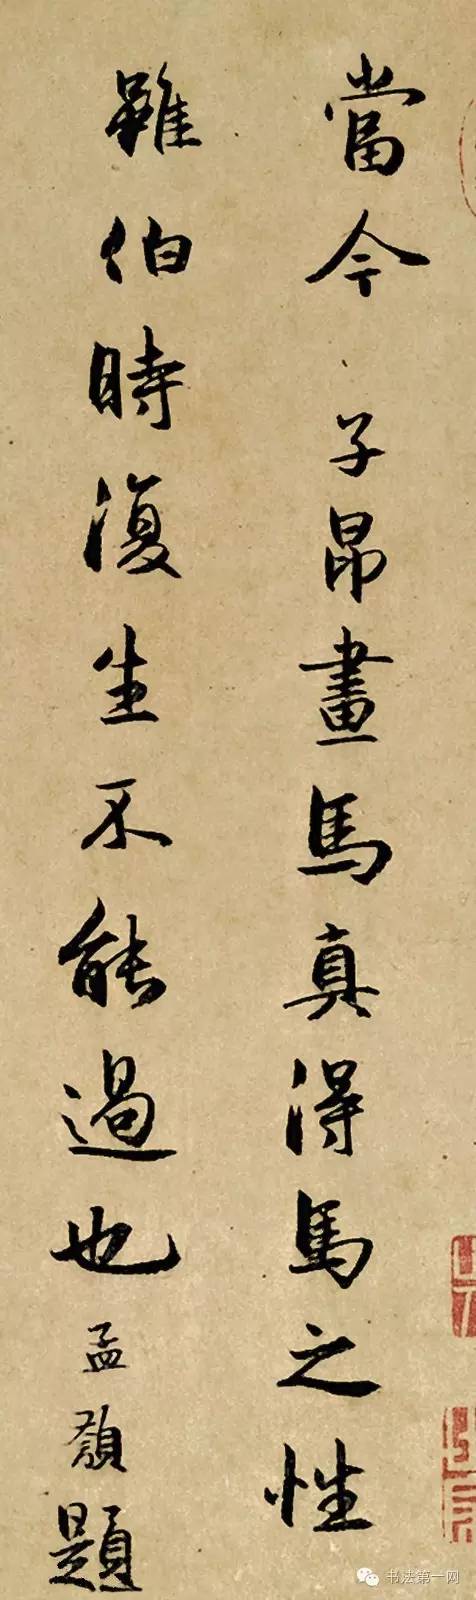 當今子昂畫馬真得馬之性
雖伯時復生不能過也孟頫題
书法第一网